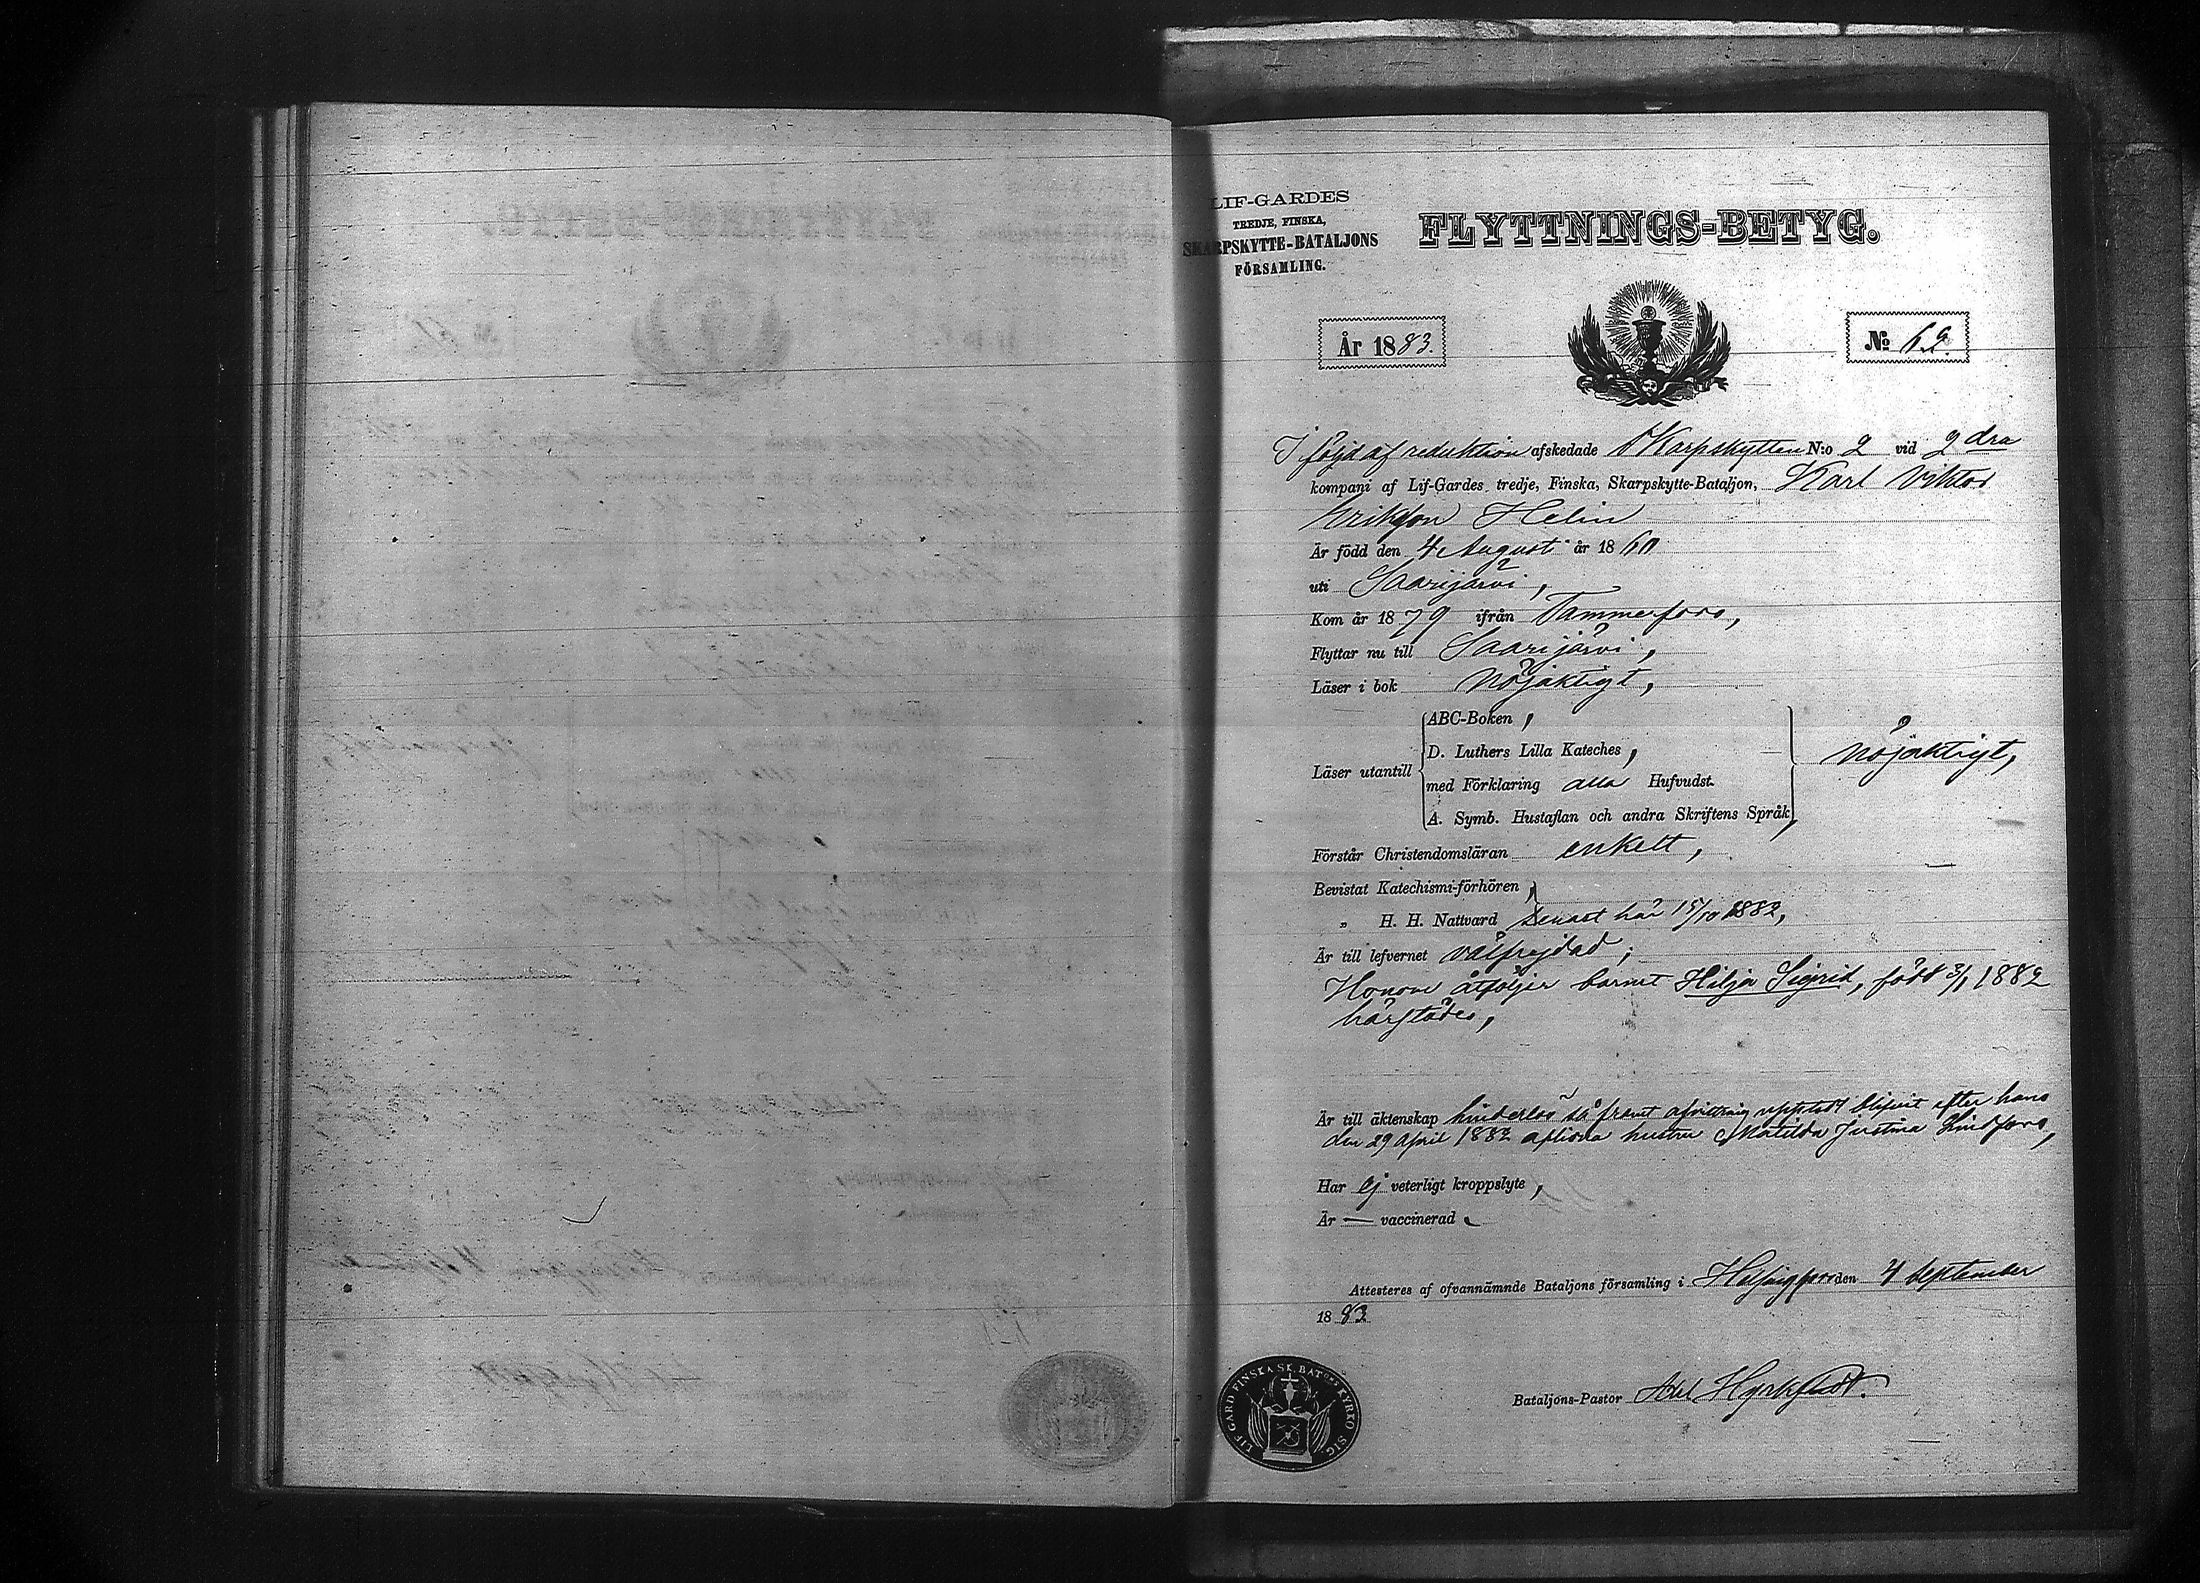 LIF-GARDES
TREDJE, FINSKA,
SKARPSKYTTE-BATALJONS
FÖRSAMLING.
FLYTTNINGS-BETYG.
År 1883.
№ 62.
I följd af reduktion afskedade Skarpskytten N:o 2 vid 2dra
kompani af Lif-Gardes tredje, Finska, Skarpskytte-Bataljon, Karl Viktor
Eriksson Helin
Är född den 4 August år 1860
uti Saarijärvi,
Kom år 1879 ifrån Tammerfors,
Flyttar nu till Saarijärvi,
Läser i bok nöjaktigt,
Läser utantill
ABC-Boken,
D. Luthers Lilla Kateches,
med Förklaring alla Hufvudst.
A. Symb. Hustaflan och andra Skriftens Språk,
nöjaktigt,
Förstår Christendomsläran enkelt,
Bevistat Katechismi-förhören,
„ H. H. Nattvard senast här 15/10 1882,
Är till lefvernet välfrejdad;
Honom åtföljer barnet Hilja Sigrid, född 3/1 1882
härstädes,
Är till äktenskap hinderlös så framt afvittring uppstått blifvit efter hans
den 29 April 1882 aflidna hustru Matilda Justina Lindfors,
Har ej veterligt kroppslyte,
Är — vaccinerad.
Attesteres af ofvannämnde Bataljons församling i Helsingfors den 4 September
1883
LIF GARD FINSKA SK. BAT:ONS KYRKO SIG.
Bataljons-Pastor Axel Hyrkstedt.